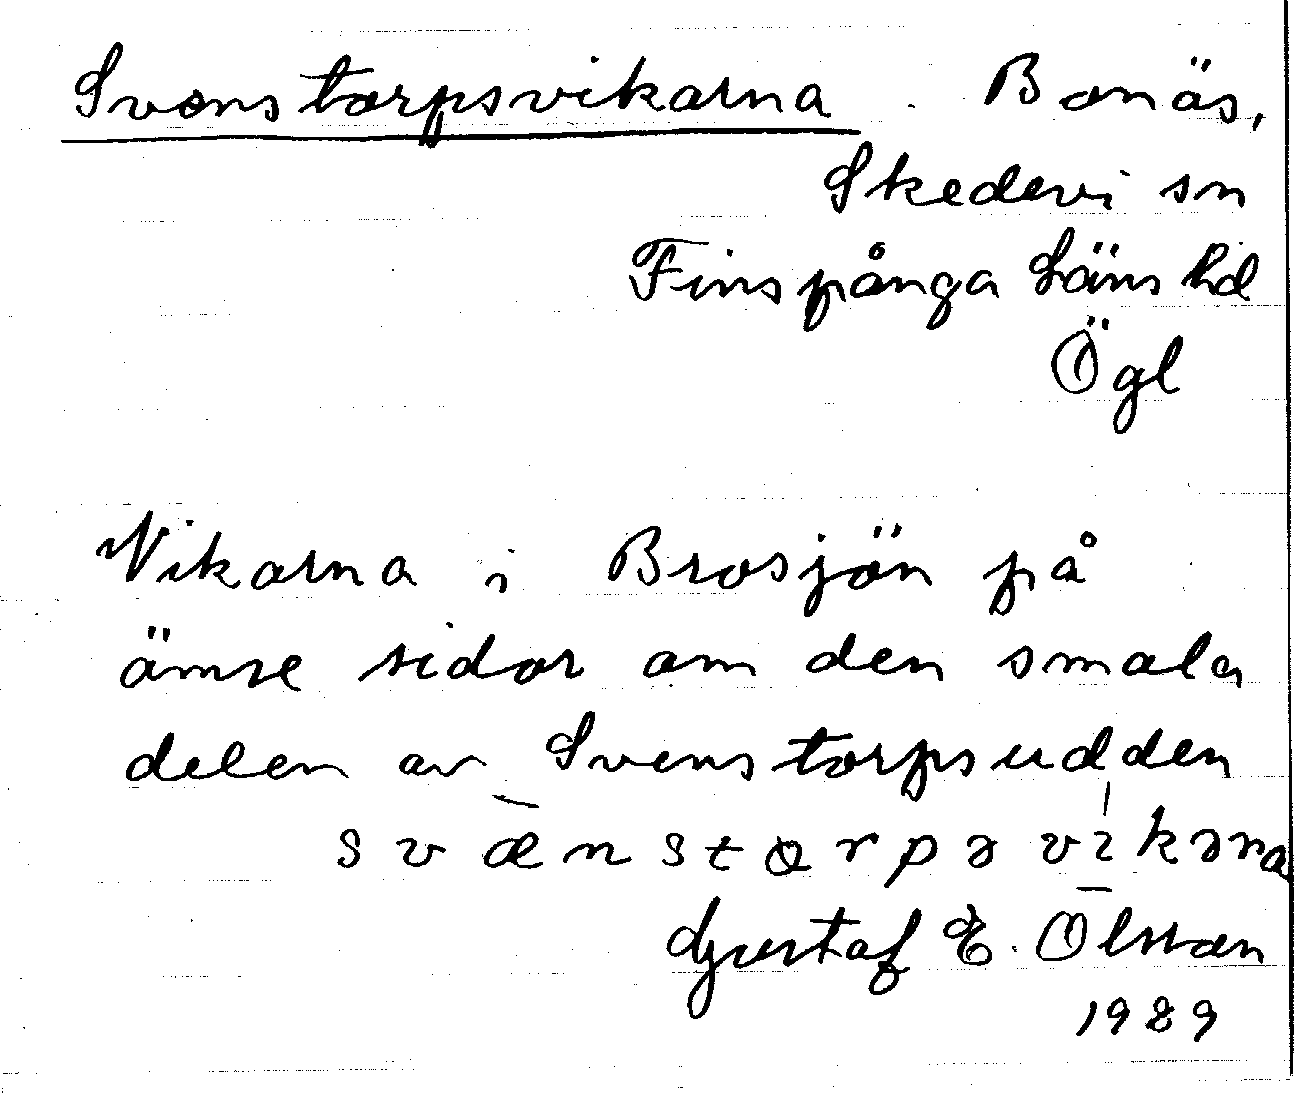 Svenstorpsvikarna. Bonäs,
Skedevi sn
Finspånga läns hd
Ögl
Vikarna i Brosjön på
ömse sidor om den smala
delen av Svenstorpsudden
svænstǫrpəvikəna
Gustaf E. Olsson
1989